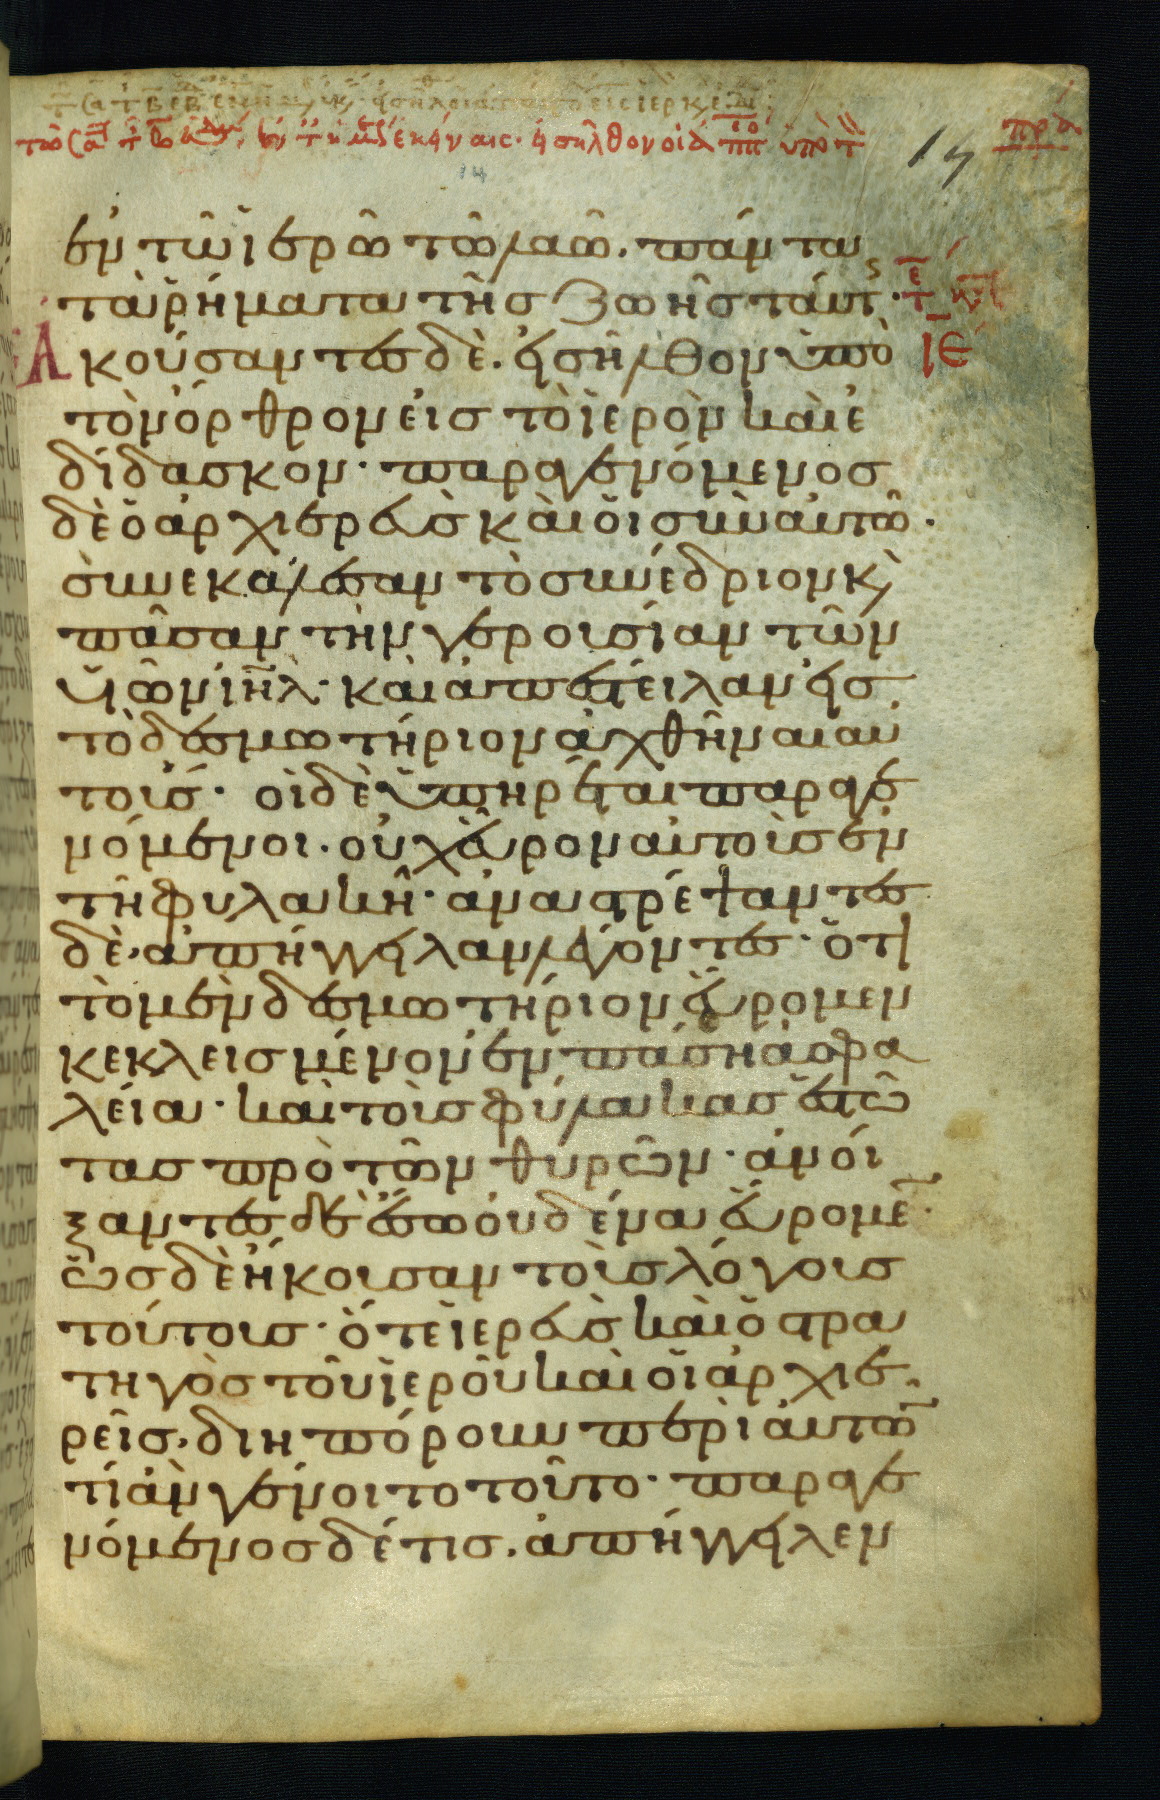 ἐν τῶ ἱερῶ τῶ λαῶ. πάντα
τὰ ῥήματα τῆς ζωῆς ταύτ(ης)·
Ἀκούσαντες δὲ. εἰσῆλθον ὑπὸ
τὸν ὄρθρον εἰς τὸ ἱερὸν καὶ ἐ
δίδασκον· παραγενόμενος
δὲ ὁ ἀρχιερεὺς καὶ οἱ σὺν αὐτῶ.
συνεκάλεσαν τὸ συνέδριον κ(αὶ)
πᾶσαν τὴν γερουσίαν τῶν
υἱῶν ιηλ· καὶ ἀπέστειλαν εἰς
τὸ δεσμωτήριον ἀχθῆναι αὐ
τούς· οἱ δὲ ὑπηρέται παραγε
νόμενοι. οὐχ εὗρον αὐτοὺς ἐν
τῆ φυλακῆ· ἀναστρέψαντες
δὲ. ἀπήγγειλαν λέγοντες· ὅτι
τὸ μὲν δεσμωτήριον εὕρομεν
κεκλεισμένον ἐν πάση ἀσφα
λεία· καὶ τοὺς φύλακας ἑστῶ
τας πρὸ τῶν θυρῶν· ἀνοί
ξαντες δὲ ἔσω οὐδένα εὕρομε(ν)·
ὡς δὲ ἤκουσαν τοὺς λόγους
τούτους· ὅ τε ἱερεὺς καὶ ὁ στρα
τηγὸς τοῦ ἱεροῦ καὶ οἱ ἀρχιε
ρεῖς. διηπόρουν περὶ αὐτῶ(ν)
τί ἂν γένοιτο τοῦτο· παραγε
νόμενος δέ τις. ἀπήγγειλεν